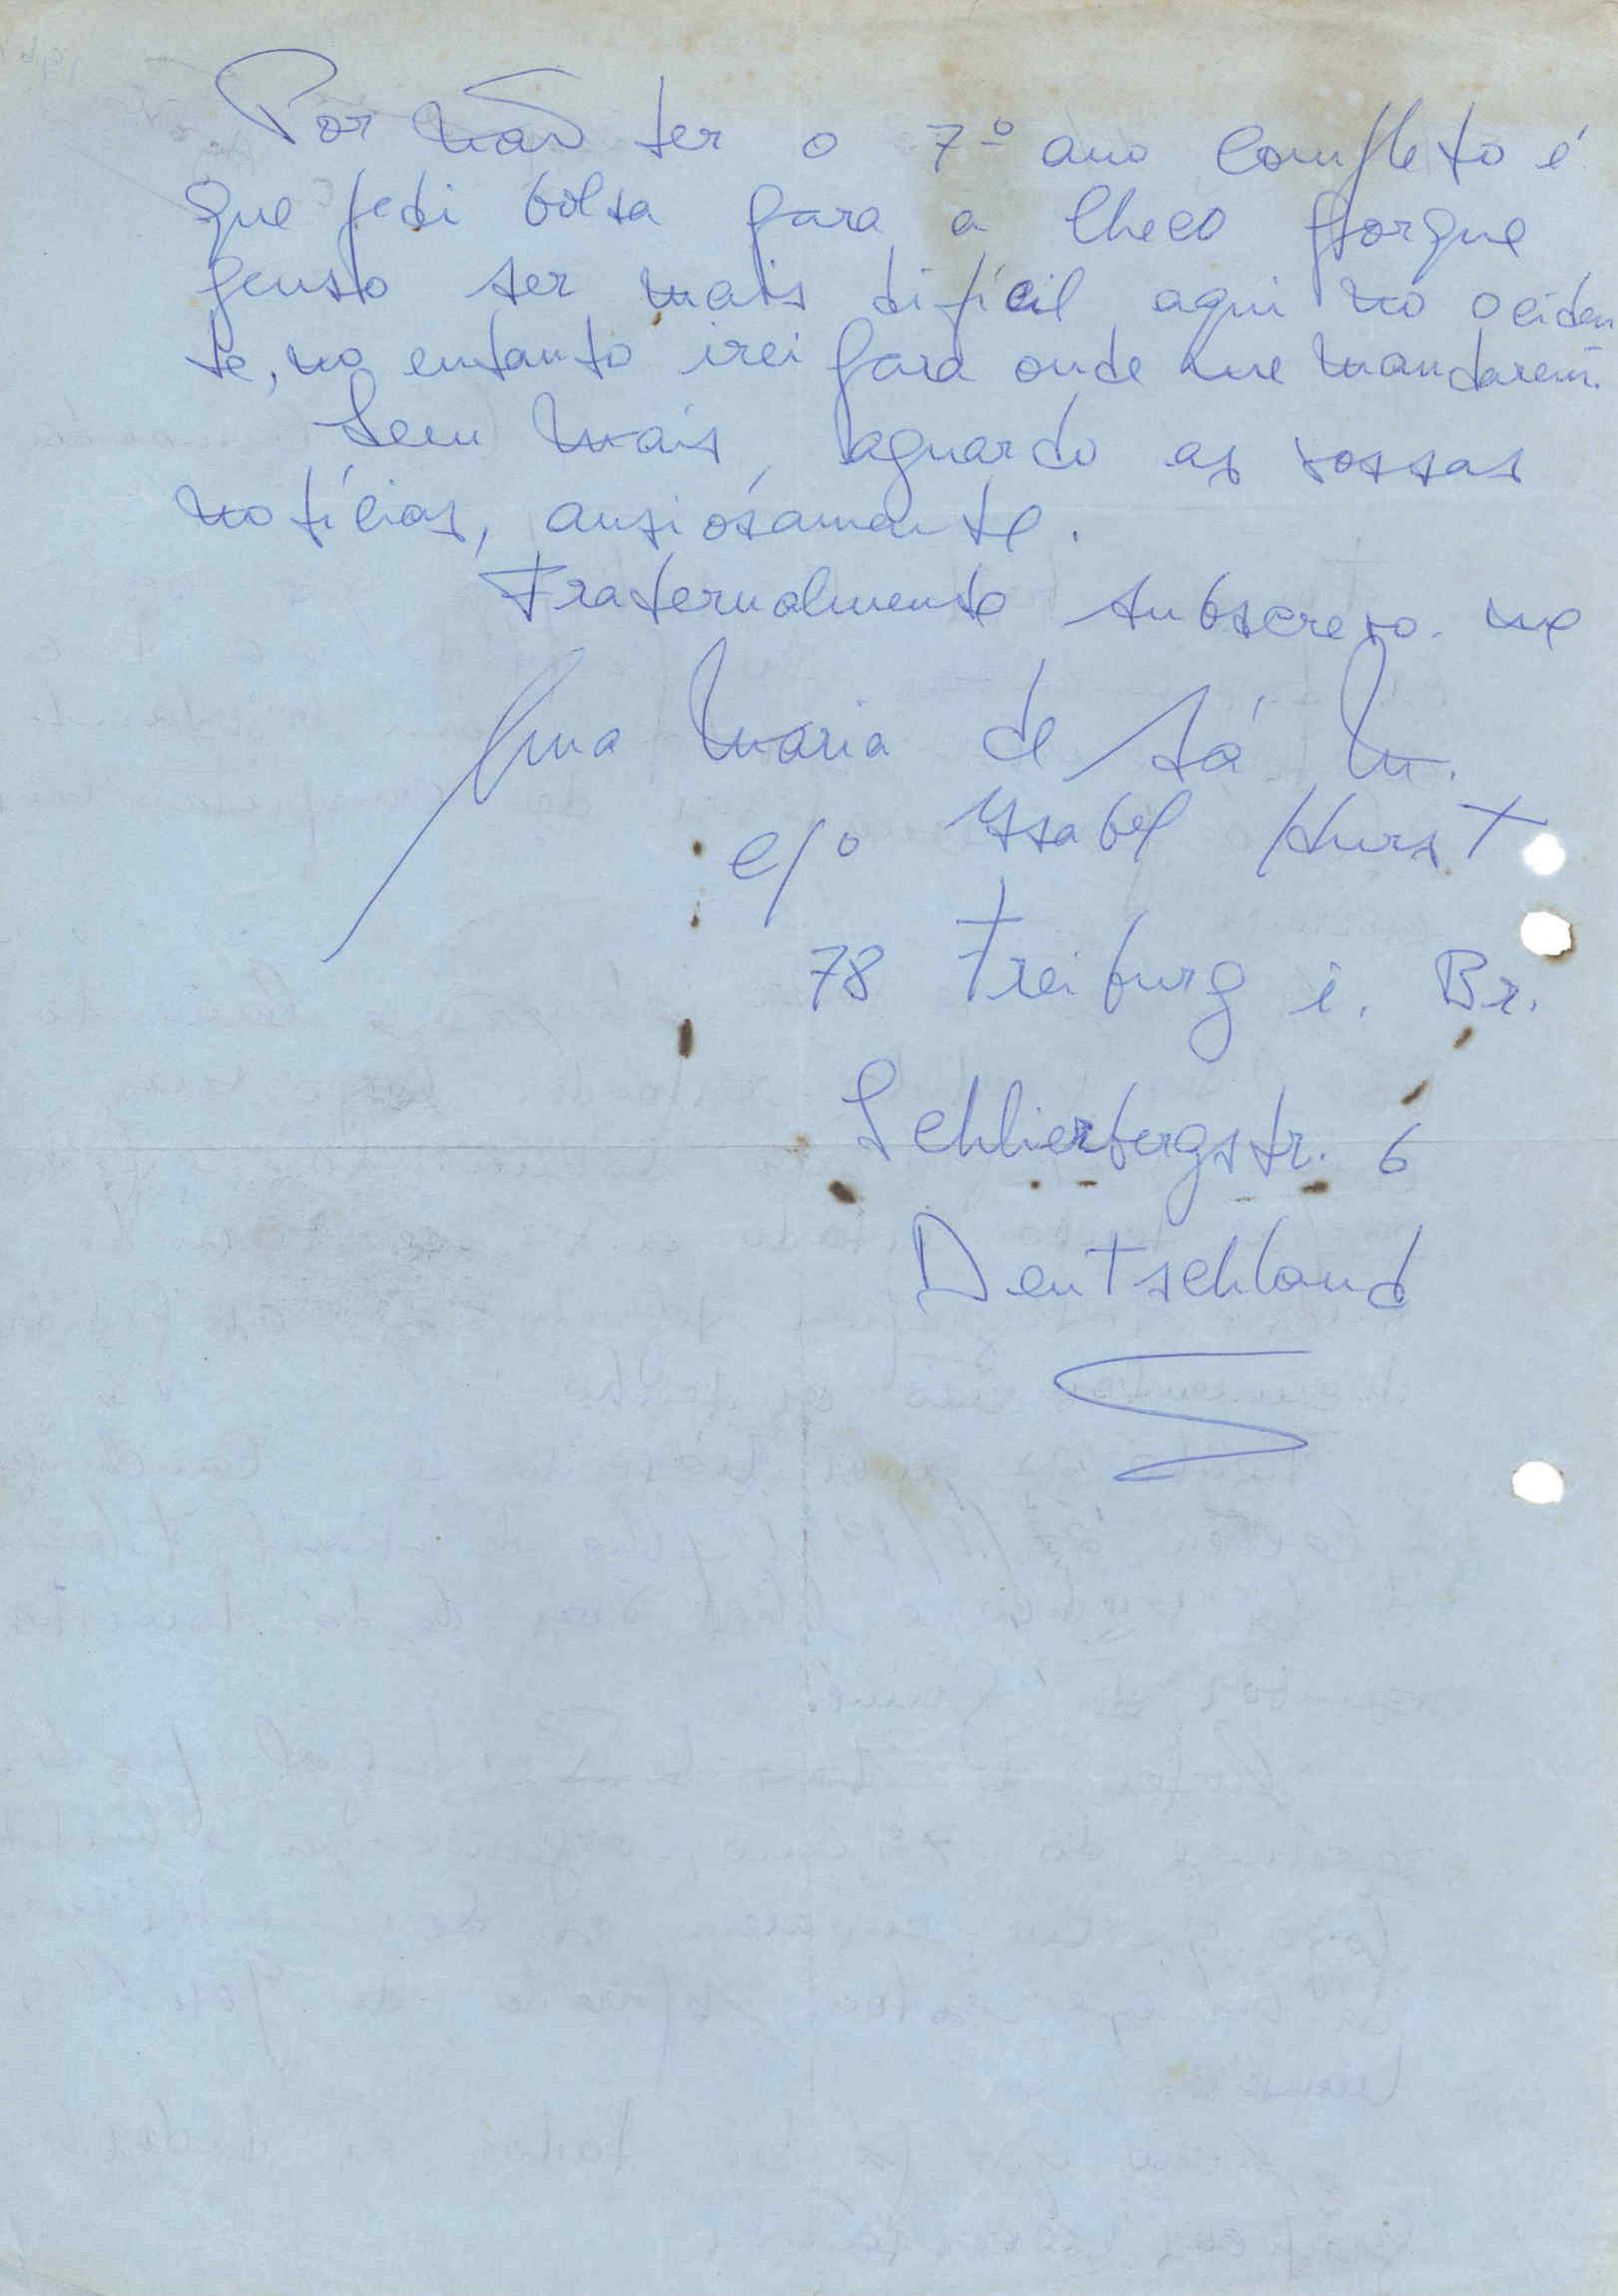 Por não ter o 7º ano completo é
que pedi bolsa para a Checo porque
penso ser mais difícil aqui no ociden
te, no entanto irei para onde me mandarem.
Sem mais, aguardo as vossas
notícias, ansiósamente.
Fraternalmente subscrevo-me
Ana Maria de Sá M.
c/o Ysabel Hurst
78 Freiburg i. Br.
Schlierbergstr. 6
Deutschland